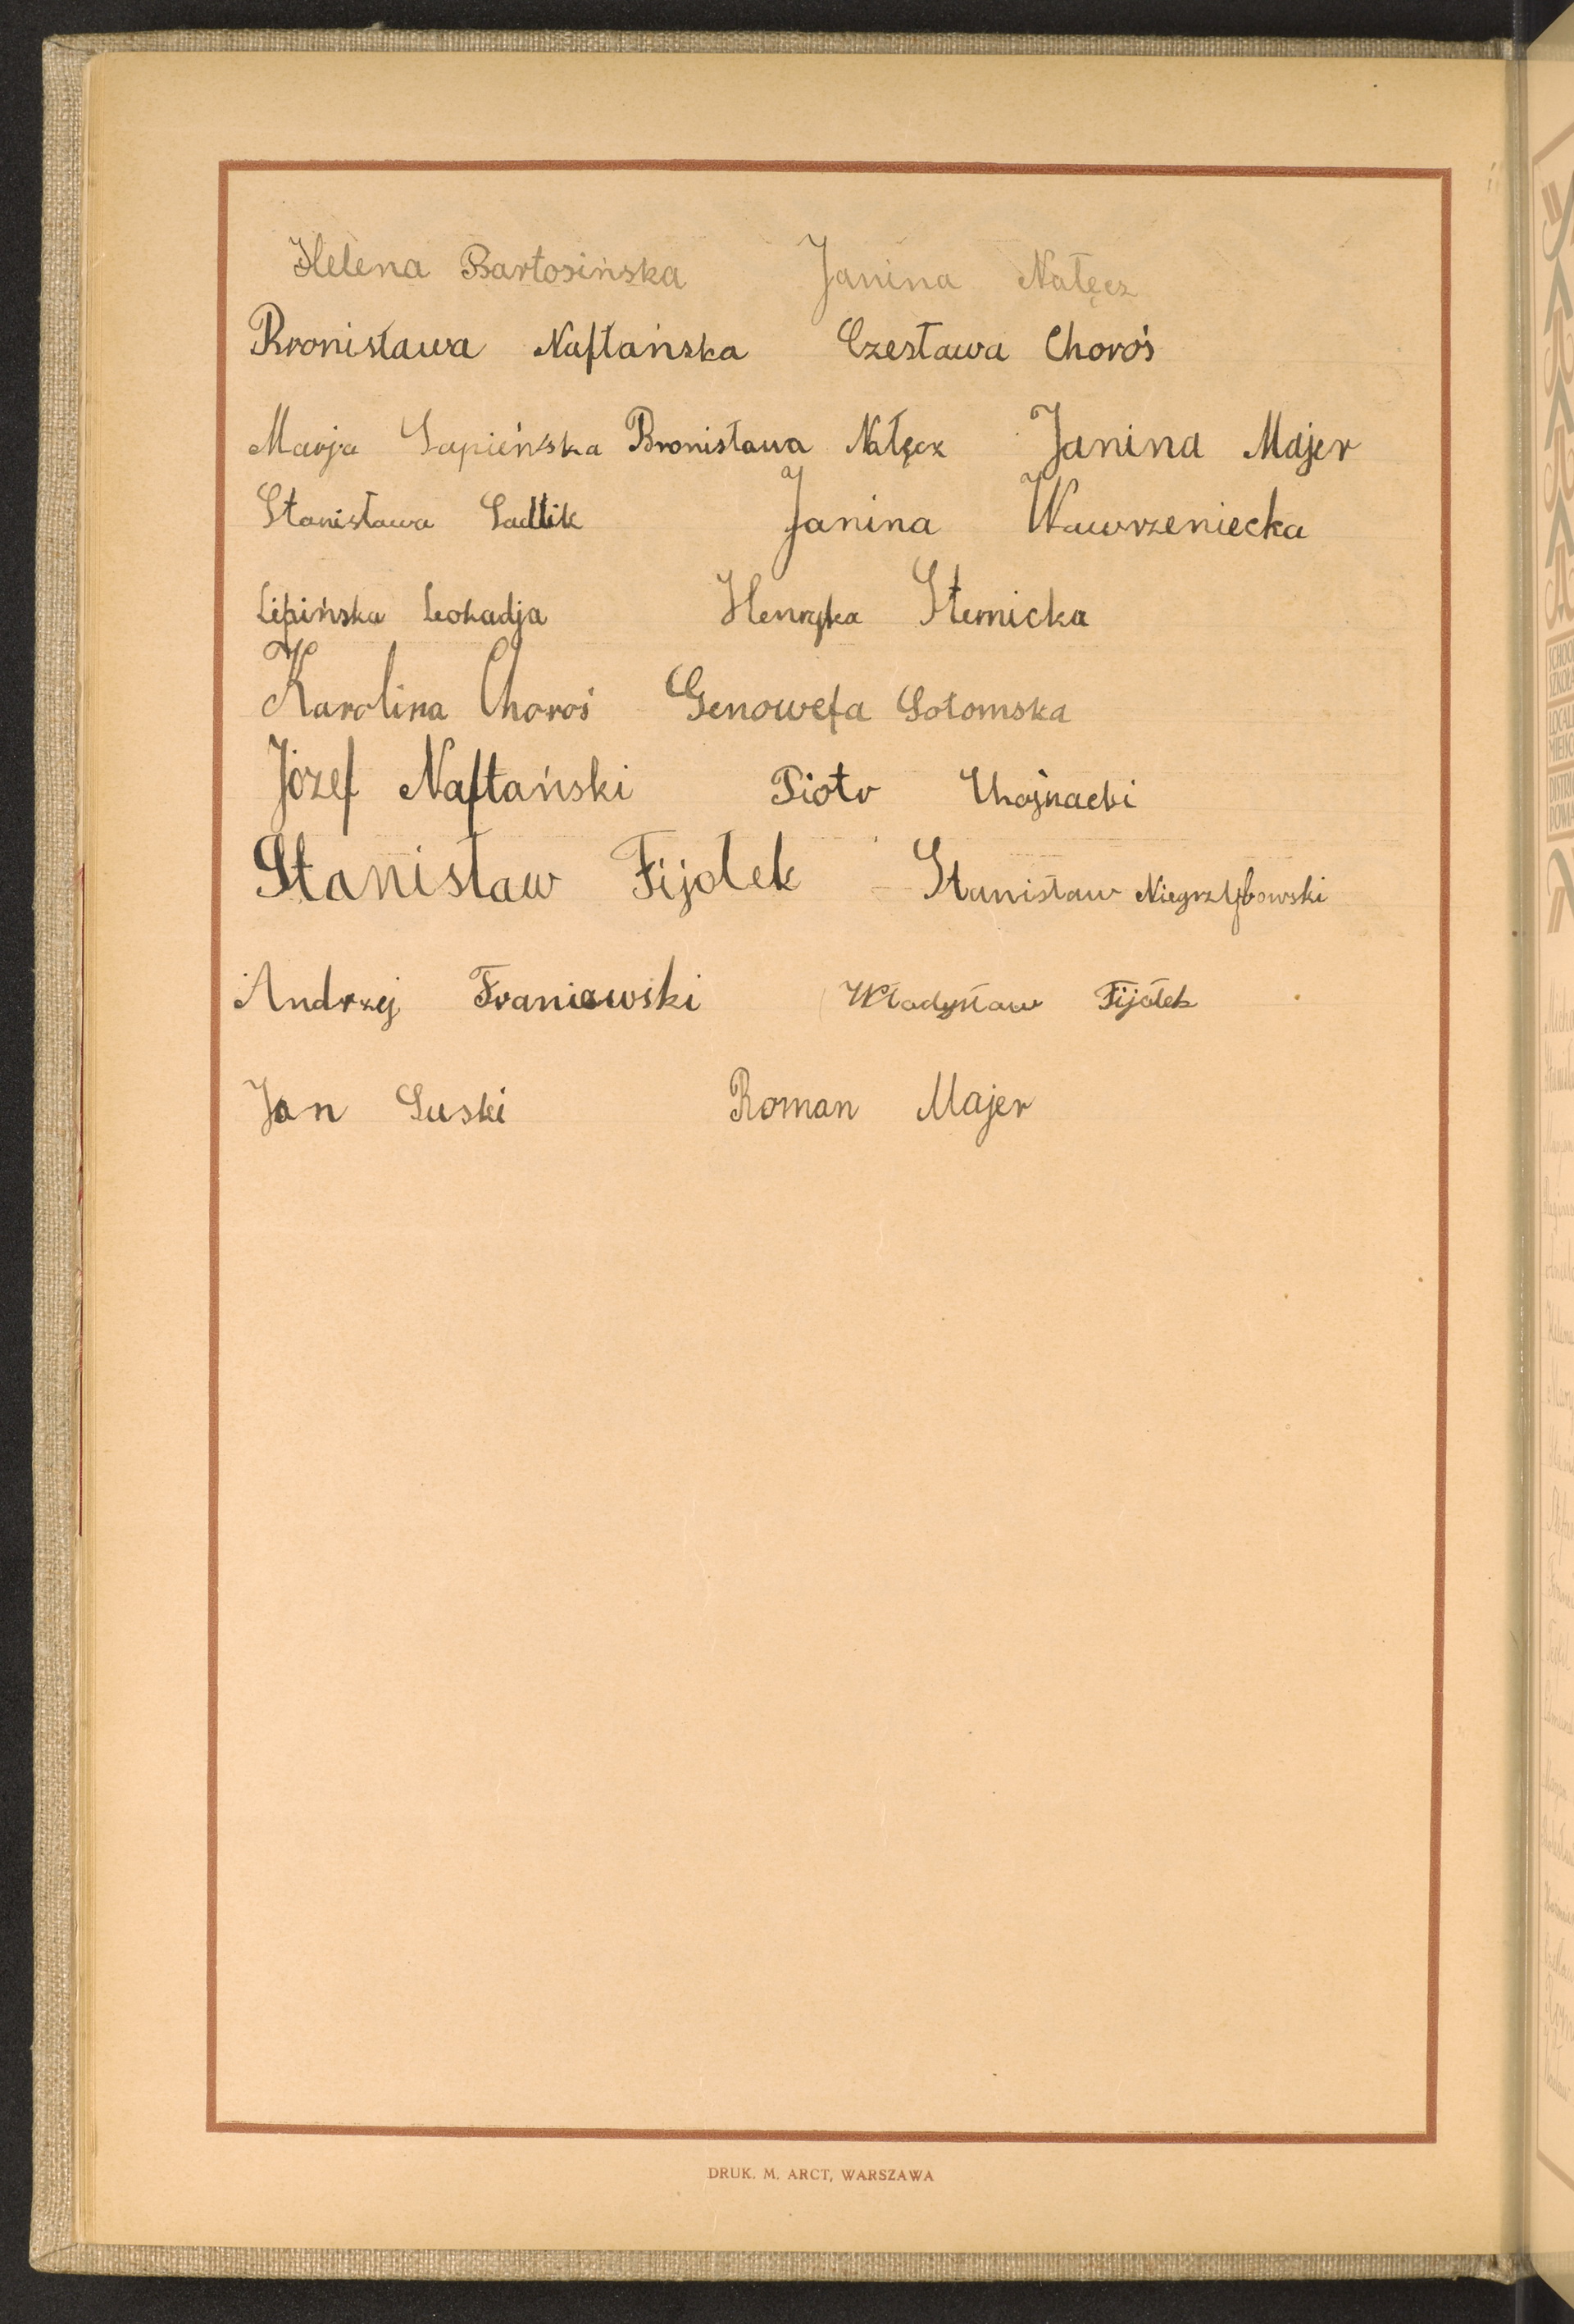 Helena Bartosińska Janina Nałęcz
Bronisława Naftańska Czesława Choroś
Marja Sapieńska Bronisława Nałęcz Janina Majer
Stanisława Sadlik Janina Wawrzeniecka
Lipińska Leokadja Henryka Słomicka
Karolina Choroś Genowefa Sołomska
Józef Naftański Piotr Chojnacki
Stanisław Fijołek Stanisław Niegrzybowski
Andrzej Franiewski Władysław Fijołek
Jan Suski Roman Majer
DRUK. M. ARCT, WARSZAWA